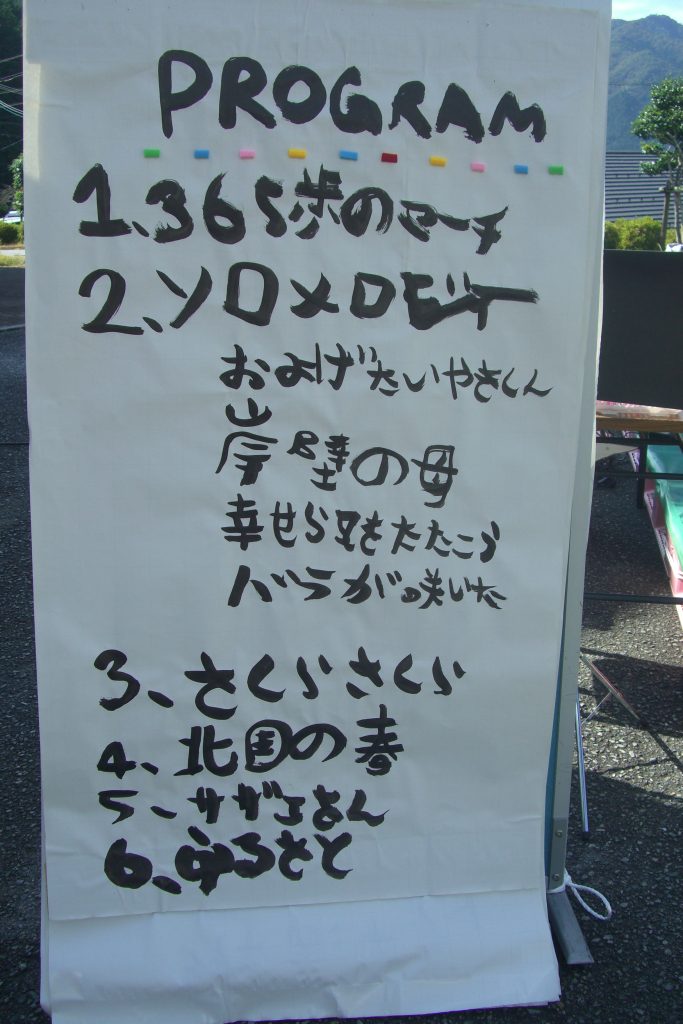 PROGRAM
1、365歩のマーチ
2、ソロメロビィー
およげたいやきくん
岸壁の母
幸せら又をたたこう
バラが咲いた
3、さくらさくら
4、北国の春
5、サザエさん
6、ふるさと